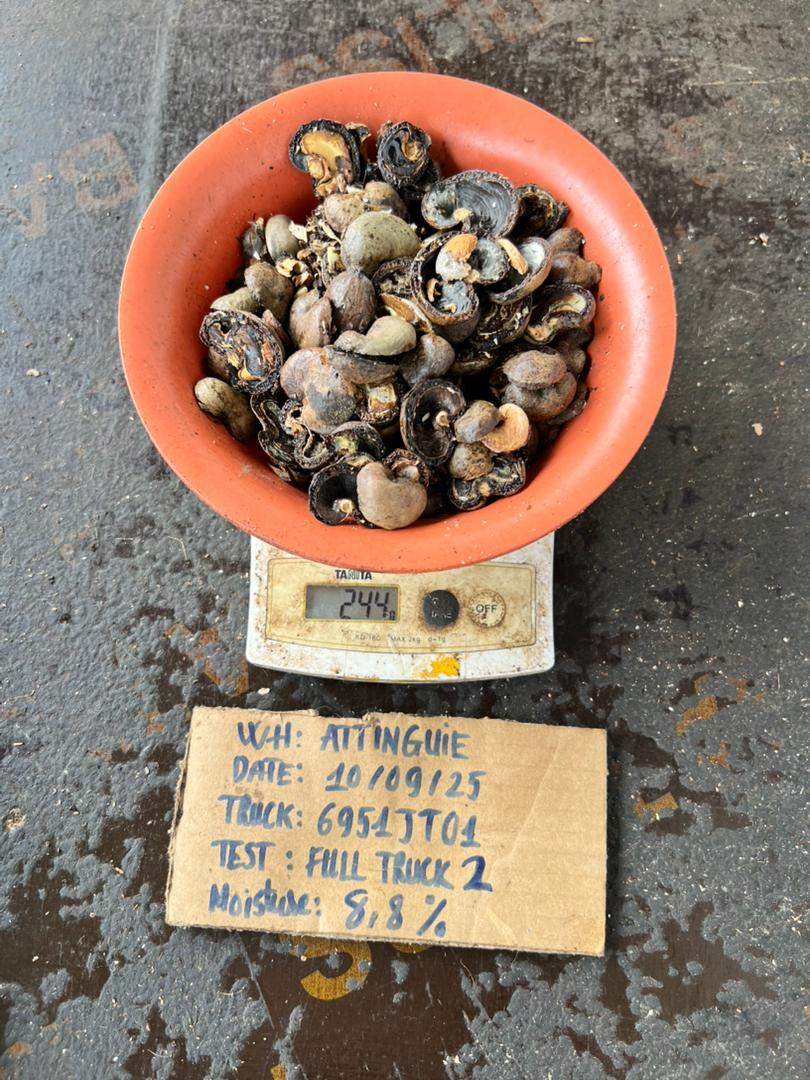 TANITA
244g
OFF
KD-160 MAX 2kg d=1g
WH: ATTINGUIE
DATE: 10/09/25
TRUCK: 6951JT01
TEST: FULL TRUCK 2
Moisture: 8,8%